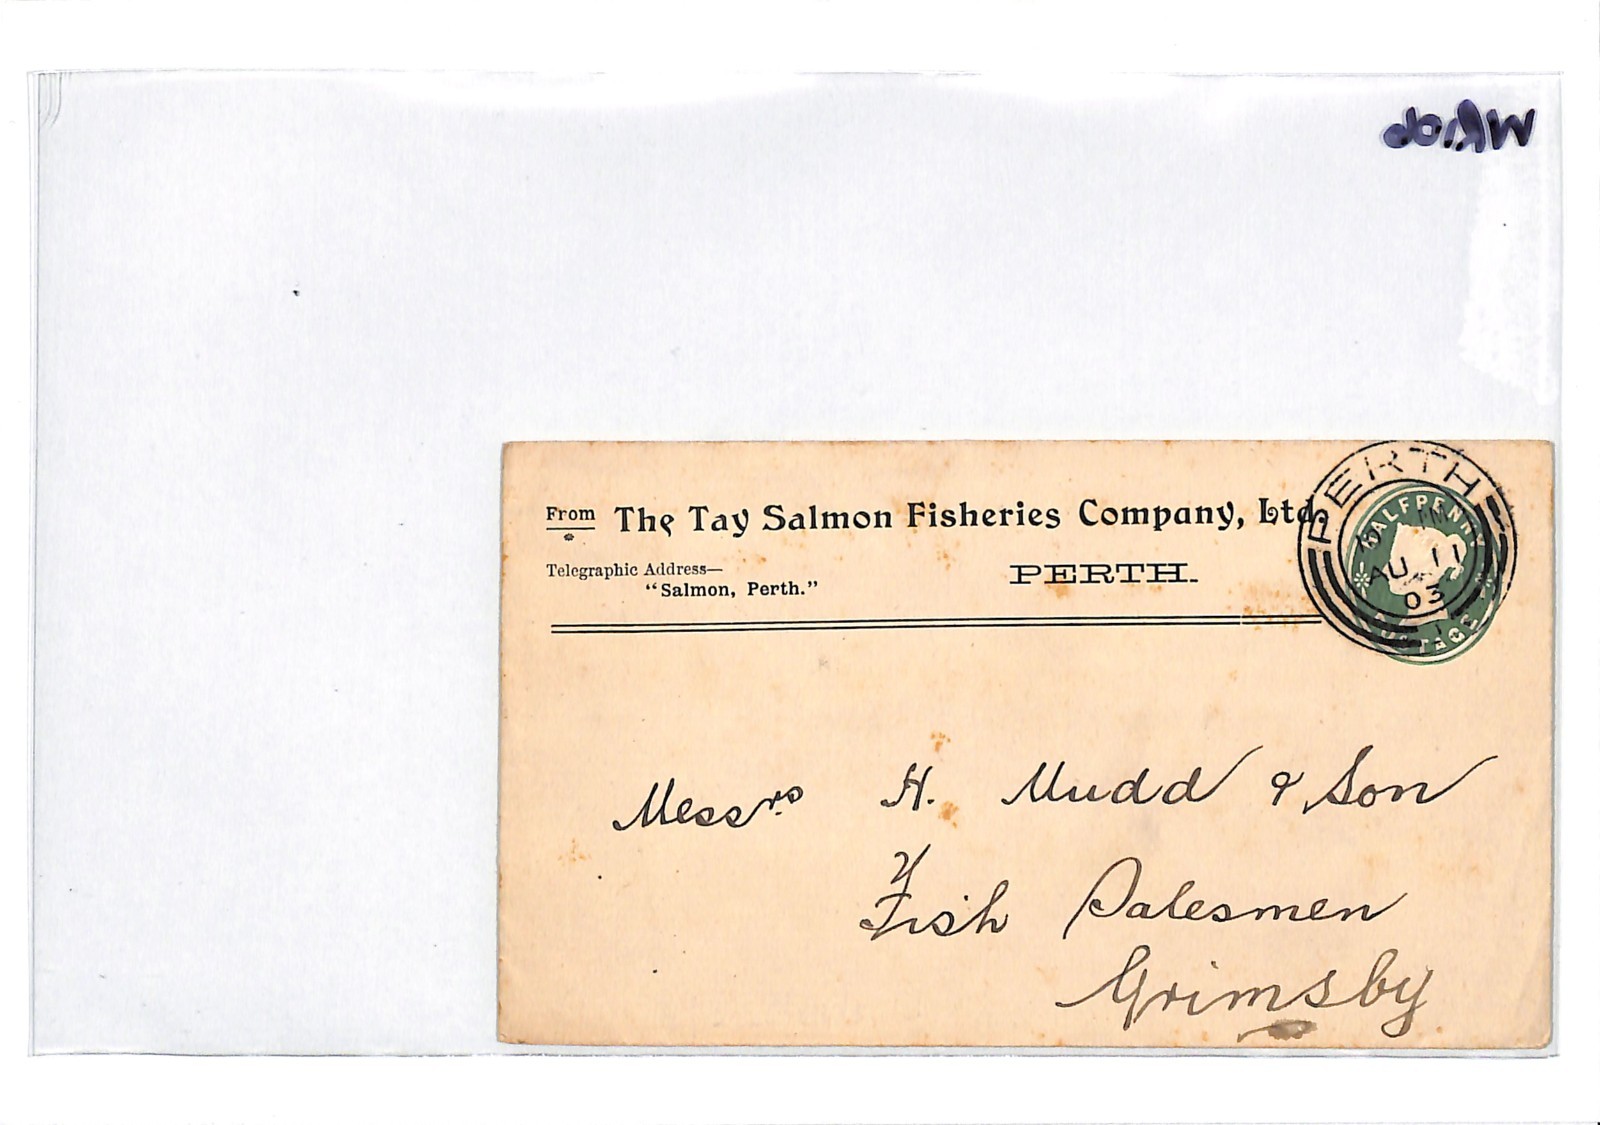 From The Tay Salmon Fisheries Company, Ltd.
Telegraphic Address—
"Salmon, Perth."
PERTH.
PERTH
AU 11
03
HALFPENNY
POSTAGE
Messrs H. Mudd & Son
Fish Salesmen
Grimsby